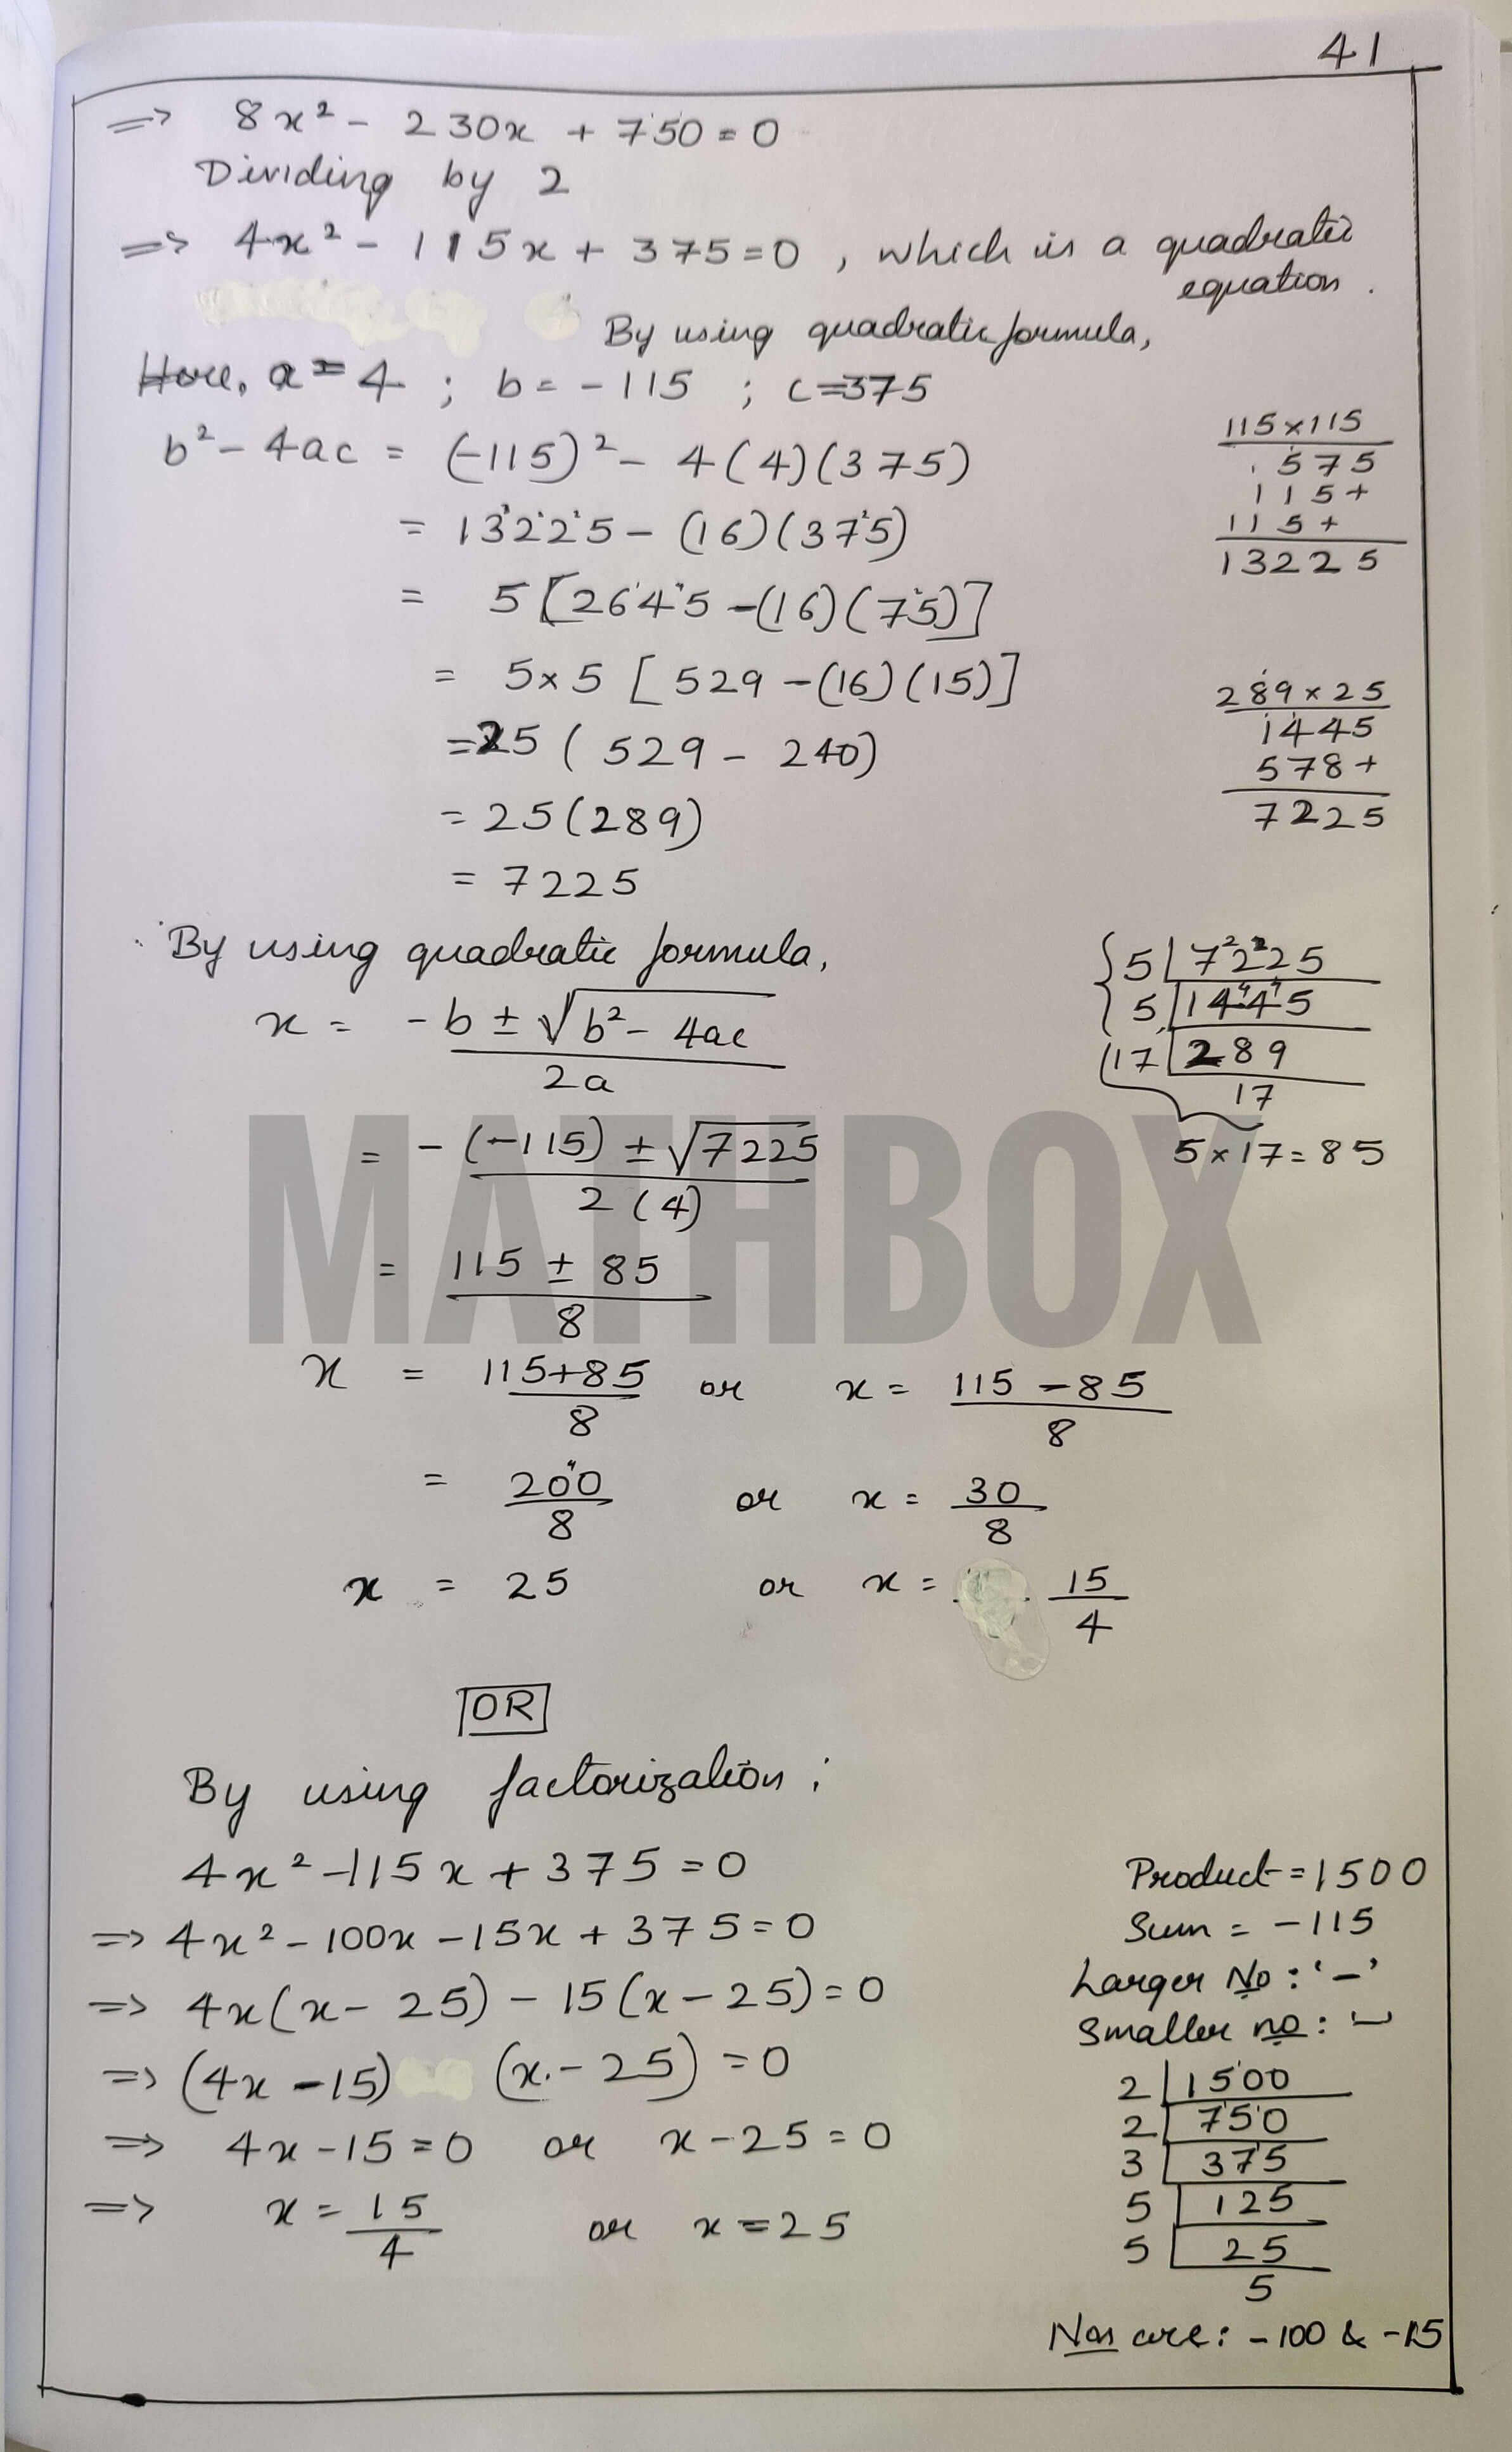 41
=> 8x² - 230x + 750 = 0
Dividing by 2
=> 4x² - 115x + 375 = 0, which is a quadratic
equation.
By using quadratic formula,
Here, a = 4 ; b = -115 ; c = 375
b² - 4ac = (-115)² - 4(4)(375)
= 13225 - (16)(375)
= 5[2645 - (16)(75)]
= 5×5 [529 - (16)(15)]
= 25 (529 - 240)
= 25(289)
= 7225
115×115
575
115+
115+
13225
289×25
1445
578+
7225
By using quadratic formula,
x = -b ± √b² - 4ac
2a
= -(-115) ± √7225
2(4)
= 115 ± 85
8
5 7225
5 1445
17 289
17
5×17=85
MATHBOX
x = 115+85 or x = 115-85
8 8
= 200 or x = 30
8 8
x = 25 or x = 15
4
OR
By using factorization;
4x² - 115x + 375 = 0
=> 4x² - 100x - 15x + 375 = 0
=> 4x(x - 25) - 15(x - 25) = 0
=> (4x - 15) (x - 25) = 0
=> 4x - 15 = 0 or x - 25 = 0
=> x = 15 or x = 25
4
Product = 1500
Sum = -115
Larger No: '-'
Smaller no: -
2 1500
2 750
3 375
5 125
5 25
5
Nos are: -100 & -15